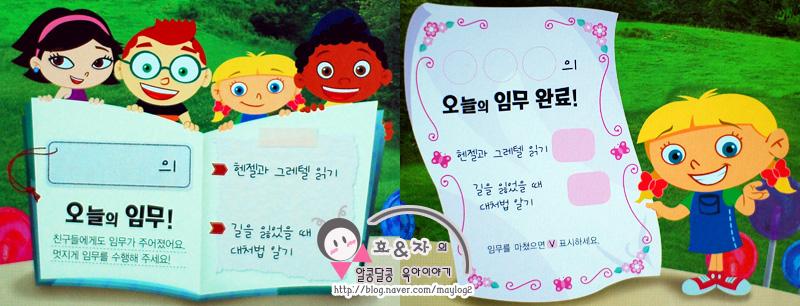 의
오늘의 임무!
친구들에게도 임무가 주어졌어요.
멋지게 임무를 수행해 주세요!
헨젤과 그레텔 읽기
길을 잃었을 때
대처법 알기
의
오늘의 임무 완료!
헨젤과 그레텔 읽기
길을 잃었을 때
대처법 알기
임무를 마쳤으면 V 표시하세요.
효&자의
알콩달콩 육아이야기
http://blog.naver.com/maylog2